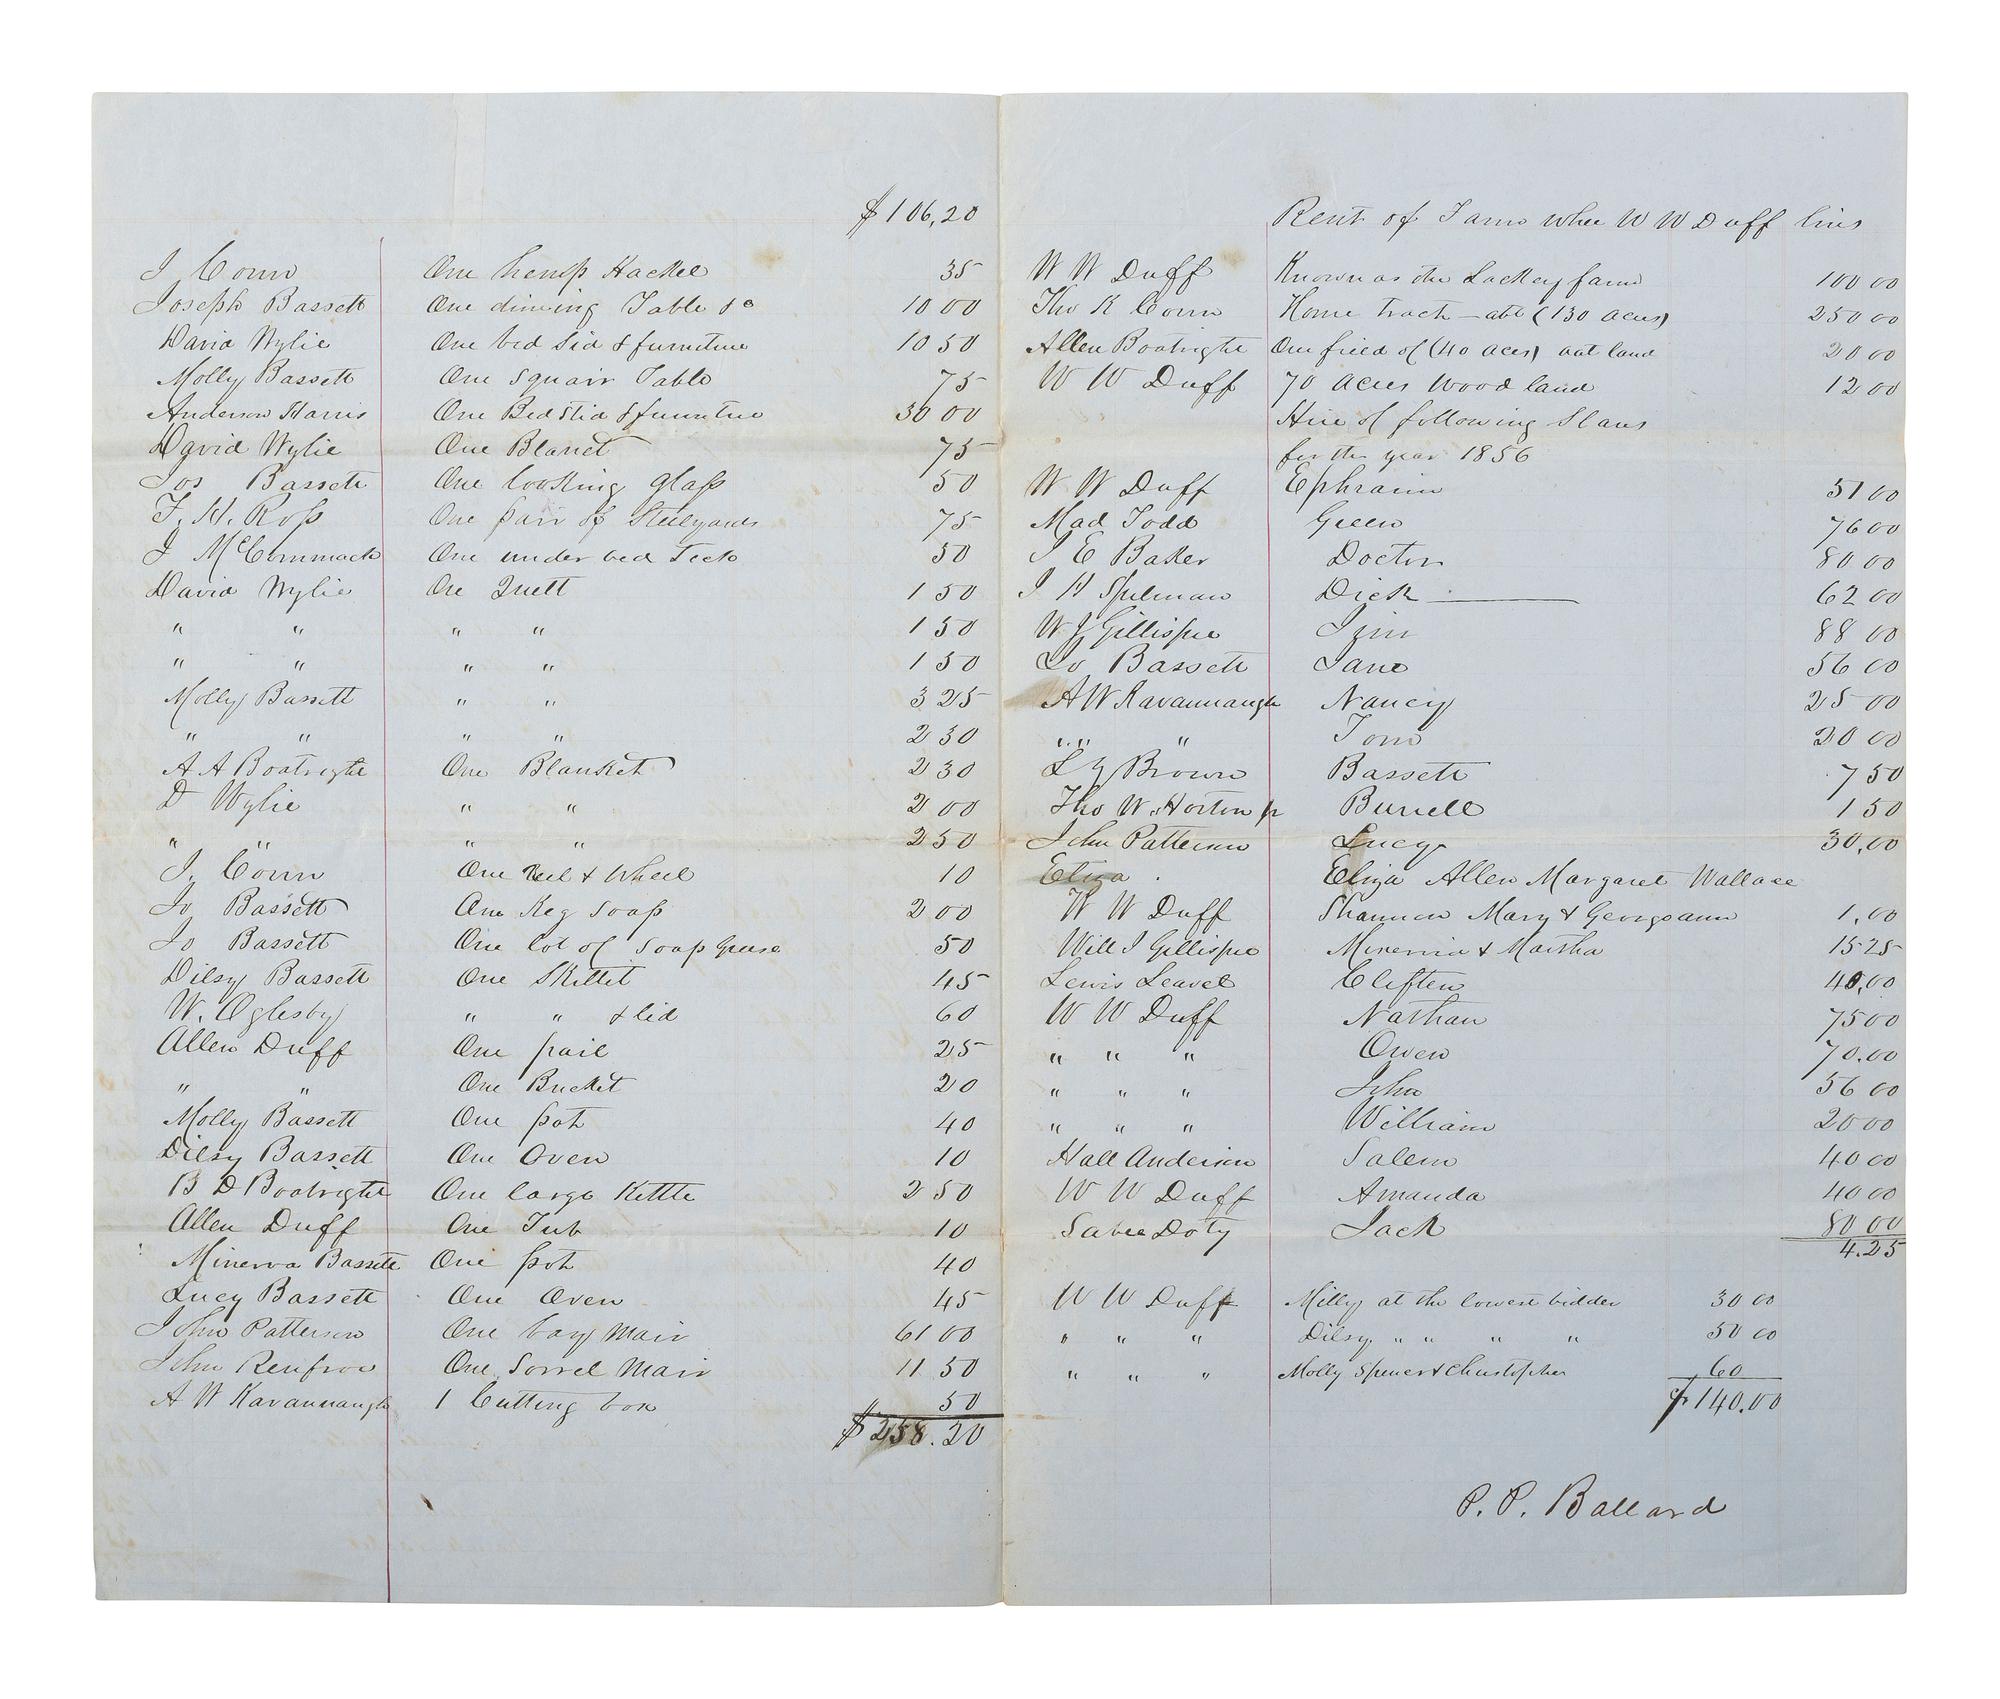 $106,20
J Conn One hemp Hackel 35
Joseph Bassett One dineing Table &c 10 00
David Wylie One bed Sid & furniture 10 50
Molly Bassett One Squair Table 75
Anderson Harris One Bedstid & furnitue 30 00
David Wylie One Blanct 75
Jos Bassett One looking glass 50
F. H. Ross One pair of Steelyards 75
J McCormmack One under bed Teck 50
David Wylie One Quelt 1 50
" " " " 1 50
" " " " 1 50
Molly Bassett " " 3 25
" " " " 2 30
A A Boatright One Blanket 2 30
D Wylie " " 2 00
" " " " 2 50
J. Conn One Reel & Wheel 10
Jo Bassett One Keg Soap 2 00
Jo Bassett One lot of Soap Grease 50
Dilsy Bassett One Skillet 45
W. Oglesby " " & lid 60
Allen Duff One pail 25
" " One Bucket 20
Molly Bassett One pot 40
Dilsy Bassett One Oven 10
B D Boatright One large Kettle 2 50
Allen Duff One Tub 10
Minerva Bassett One pot 40
Lucy Bassett One Oven 45
John Patterson One bay Mair 61 00
John Renfroe One Sorrel Mair 11 50
A W Kavannaugh 1 Cutting box 50
$258.20
Rent of Farm whee W W Duff lives
W W Duff Known as the Lackey farm 100 00
Tho K Conn Home track - abt (130 acres) 250 00
Allen Boatright One field of (40 aces) oat land 20 00
W W Duff 70 acres Wood land 12 00
Hire of following Slaves
for the year 1856
W W Duff Ephraim 51 00
Mad Todd Green 76 00
J E Baker Doctor 80 00
J H Spilman Dick 62 00
W J Gillispie Jim 88 00
Jo Bassett Jane 56 00
A W Kavannaugh Nancy 25 00
" " " Tom 20 00
L Y Brown Bassett 7 50
Tho W. Horton jr Burrell 1 50
John Patterson Lucy 30,00
Eliza Eliza Allen Margaret Wallace
W W Duff Shannon Mary & Georgeann 1,00
Will J Gillispie Minervia & Martha 15 25
Lewis Leavel Cliften 40,00
W W Duff Nathan 75 00
" " " Owen 70.00
" " " John 56 00
" " " William 20 00
Hall Anderson Salem 40 00
W W Duff Amanda 40 00
Sabee Doty Jack 80 00
4.25
W W Duff Milly at the lowest bidder 30 00
" " " Dilsy " " " " 50 00
" " " Molly Spencer & Christopher 60
$140.00
P. P. Ballard